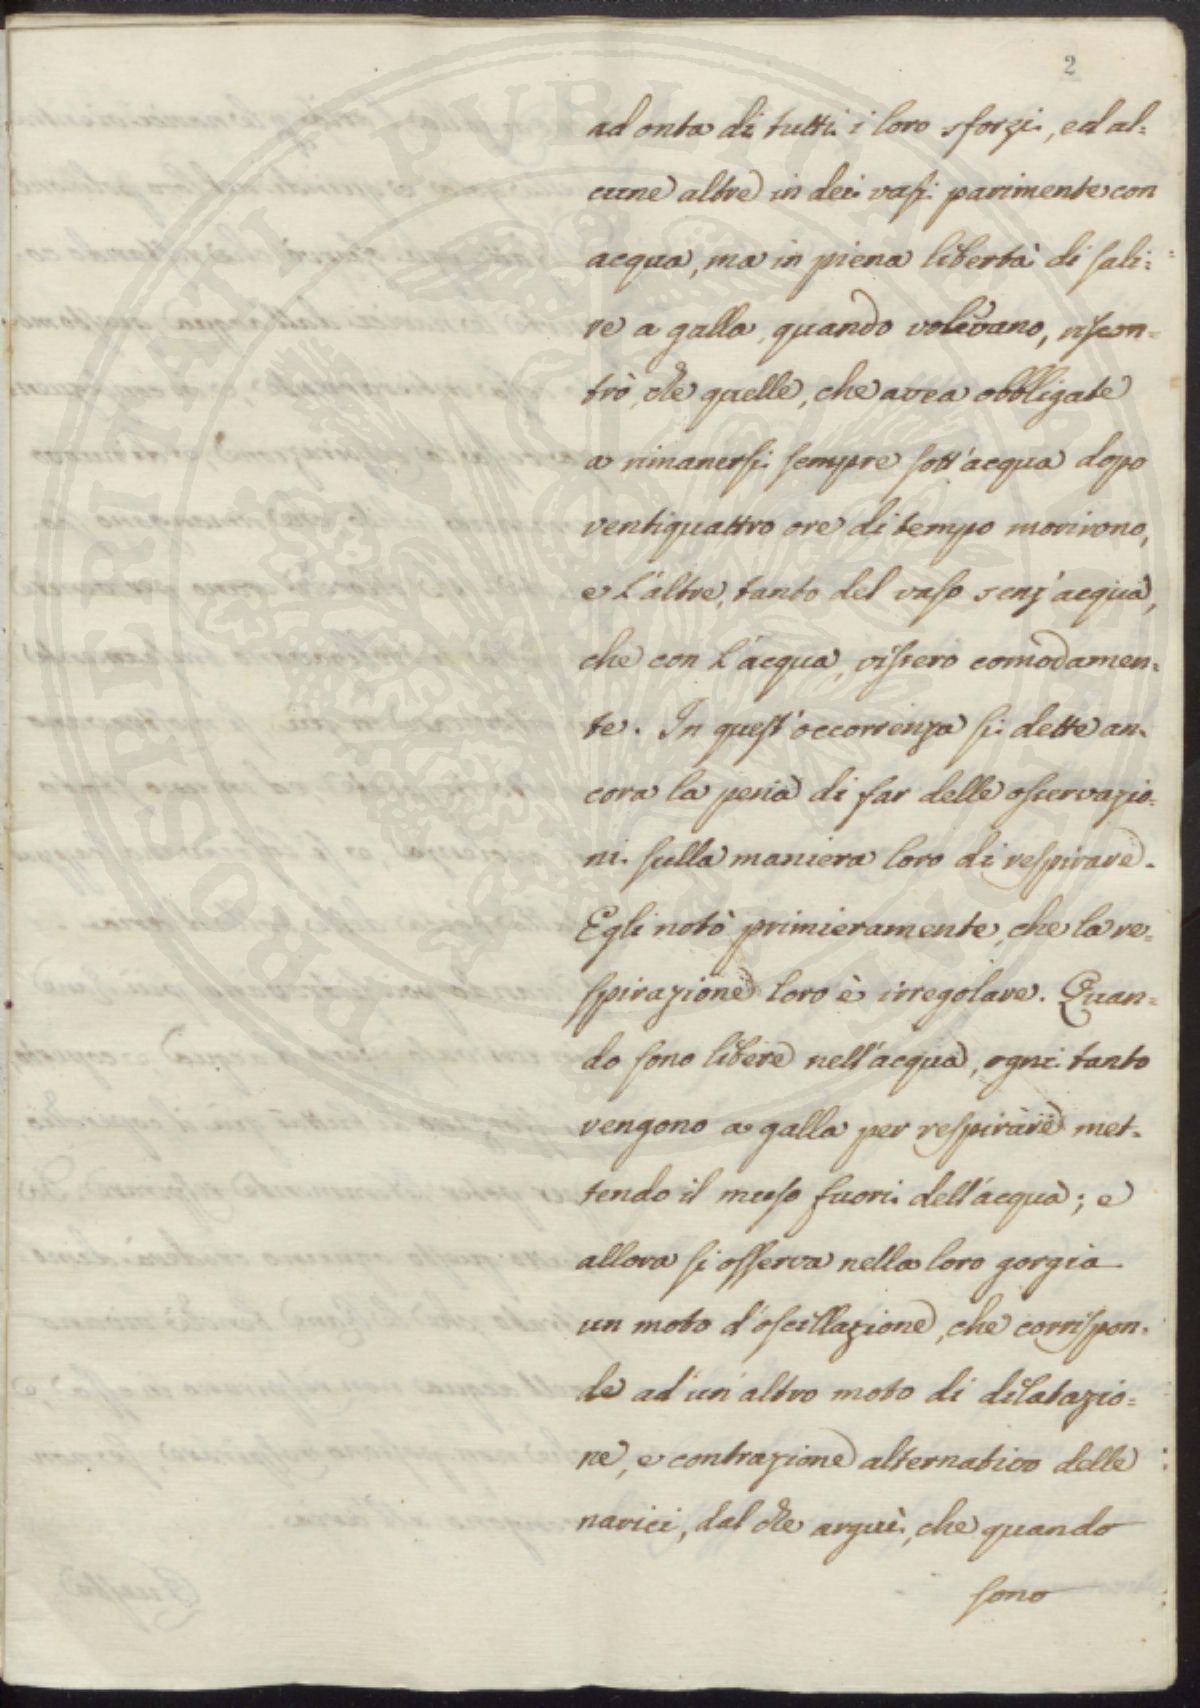 2
ad onta di tutti i loro sforzi, ed al=
cune altre in dei vasi parimente con
acqua, ma in piena libertà di sali=
re a galla, quando volevano, riscon=
trò, che quelle, che avea obbligate
a rimanersi sempre sott'acqua dopo
ventiquattro ore di tempo morirono,
e l'altre, tanto del vaso senz'acqua,
che con l'acqua, vissero comodamen=
te. In quest'occorrenza si dette an=
cora la pena di far delle osservazio=
ni sulla maniera loro di respirare.
Egli notò primieramente, che la re=
spirazione loro è irregolare. Quan=
do sono libere nell'acqua, ogni tanto
vengono a galla per respirare met=
tendo il muso fuori dell'acqua; e
allora si osserva nella loro gorgia
un moto d'oscillazione, che corrispon=
de ad un'altro moto di dilatazio=
ne, e contrazione alternativo delle
narici, dal che arguì, che quando
sono
PROSPERITATI PUBLICAE